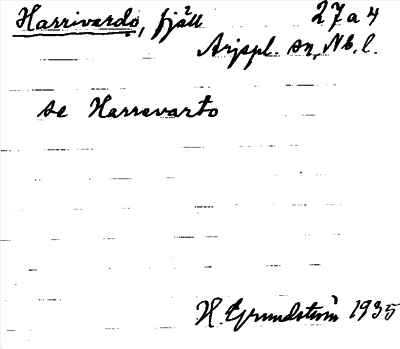 Harrivardo, fjäll 27a4
Arjepl. sn, Nb. l.
se Harrevarto
H. Grundström 1935